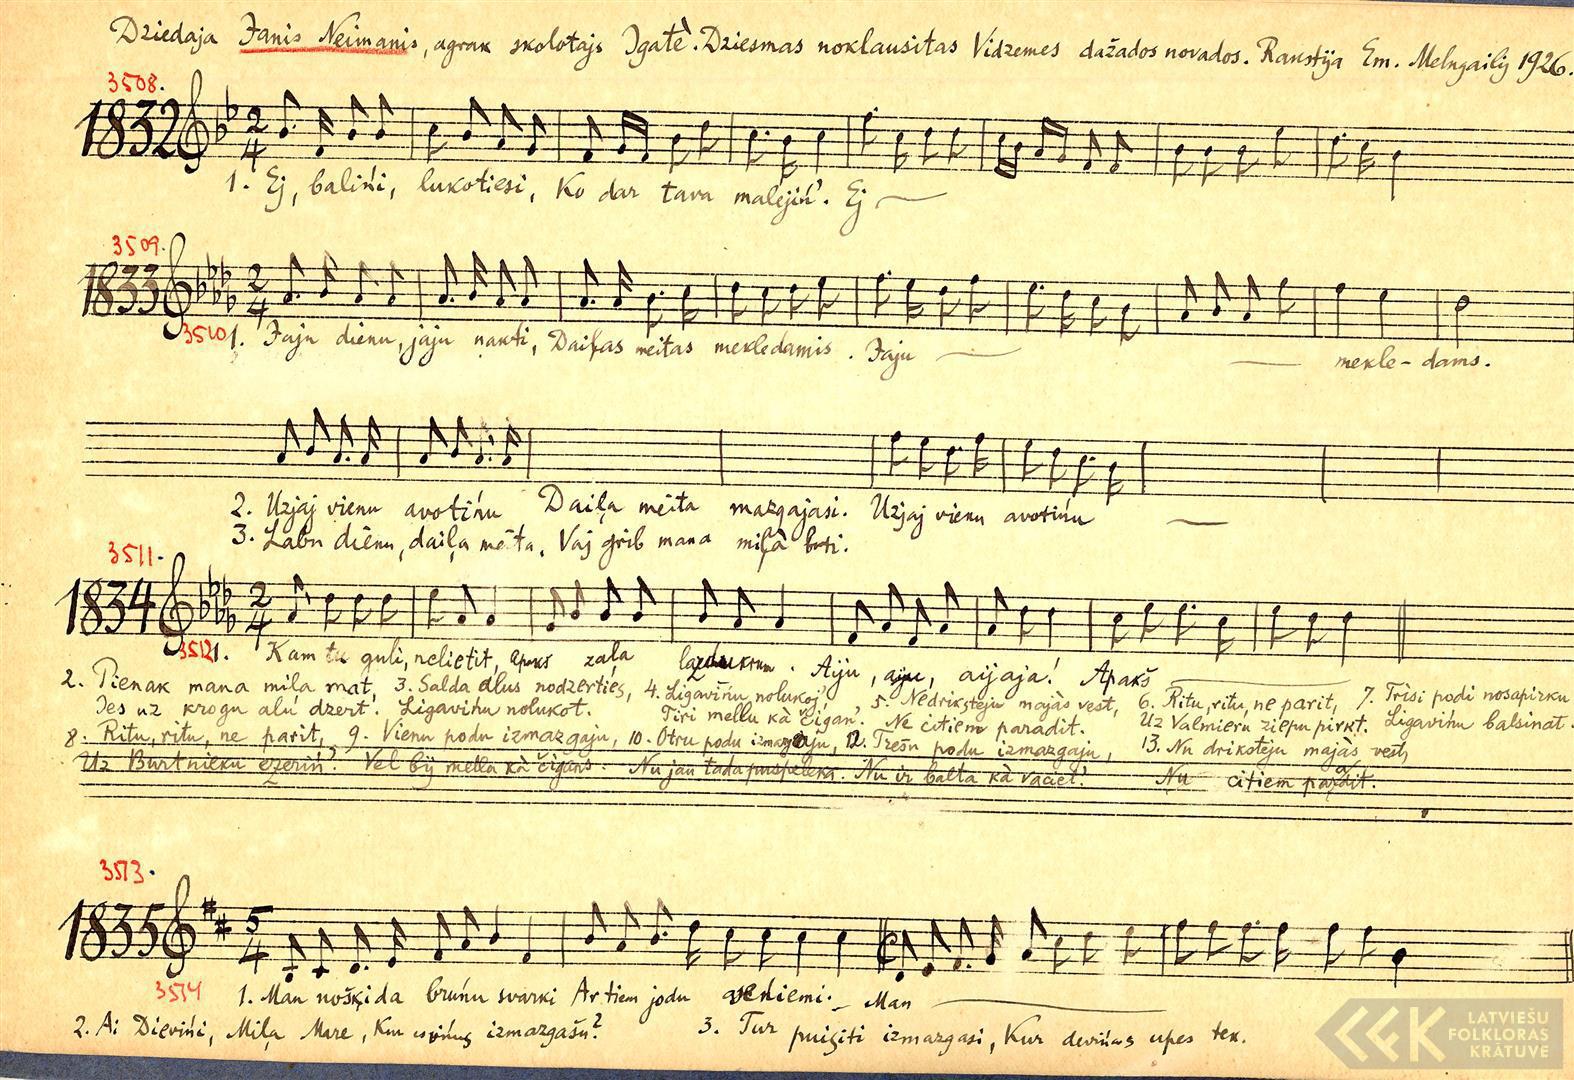 Dziedaja Janis Neimanis, agrak skolotajs Igatē. Dziesmas noklausitas Vidzemes dažados novados. Rakstija Em. Melngailis 1926.
3508.
1832 2/4
1. Ej, balini, lukotiesi, Ko dar tava malejiń'. Ej
3509.
1833 2/4
3510 1. Jaju dienu, jaju nakti, Daiļas meitas mekledamis. Jaju mekle-dams.
2. Uzjaj vienu avotińu Daiļa meita mazgajasi. Uzjaj vienu avotińu
3. Labu dienu, daiļa meita, Vaj grib mana miļa buti.
3511.
1834 2/4
3512 1. Kam tu guli, neliepit, apakš zaļa . Aiju, aiju, aijaja! Apakš
2. Pienak mana mila mat, 3. Salda alus nodzerties, 4. Ligavińu nolukoj', 5. Nedriksteju majàs vest, 6. Ritu, ritu, ne parit, 7. Trisi podi nosapirku
Ies uz krogu alu dzert. Ligavińu nolukot. Tiri mellu kà čigan'. Ne citiem paradit. Uz Valmieru ziepu pirkt. Ligavińu balsinat.
8. Ritu, ritu, ne parit, 9. Vienu podu izmazgaju, 10. Otru podu izmazgaju, 12. Trešu podu izmazgaju, 13. Nu driksteju majàs vest,
Uz Burtnieku ezeriń'. Vel bij mella kà čigans. Nu jau tada puspeleka. Nu ir balta kà vaciet'. Nu citiem paradit.
3513.
1835 5/4
3514 1. Man nošķida brunu svarki Ar tiem jodu . Man
2. Ai Dievińi, Miļa Mare, Kur izmazgašu? 3. Tur puiģiti izmazgasi, Kur devińas upes tek.
LATVIEŠU
FOLKLORAS
KRĀTUVE